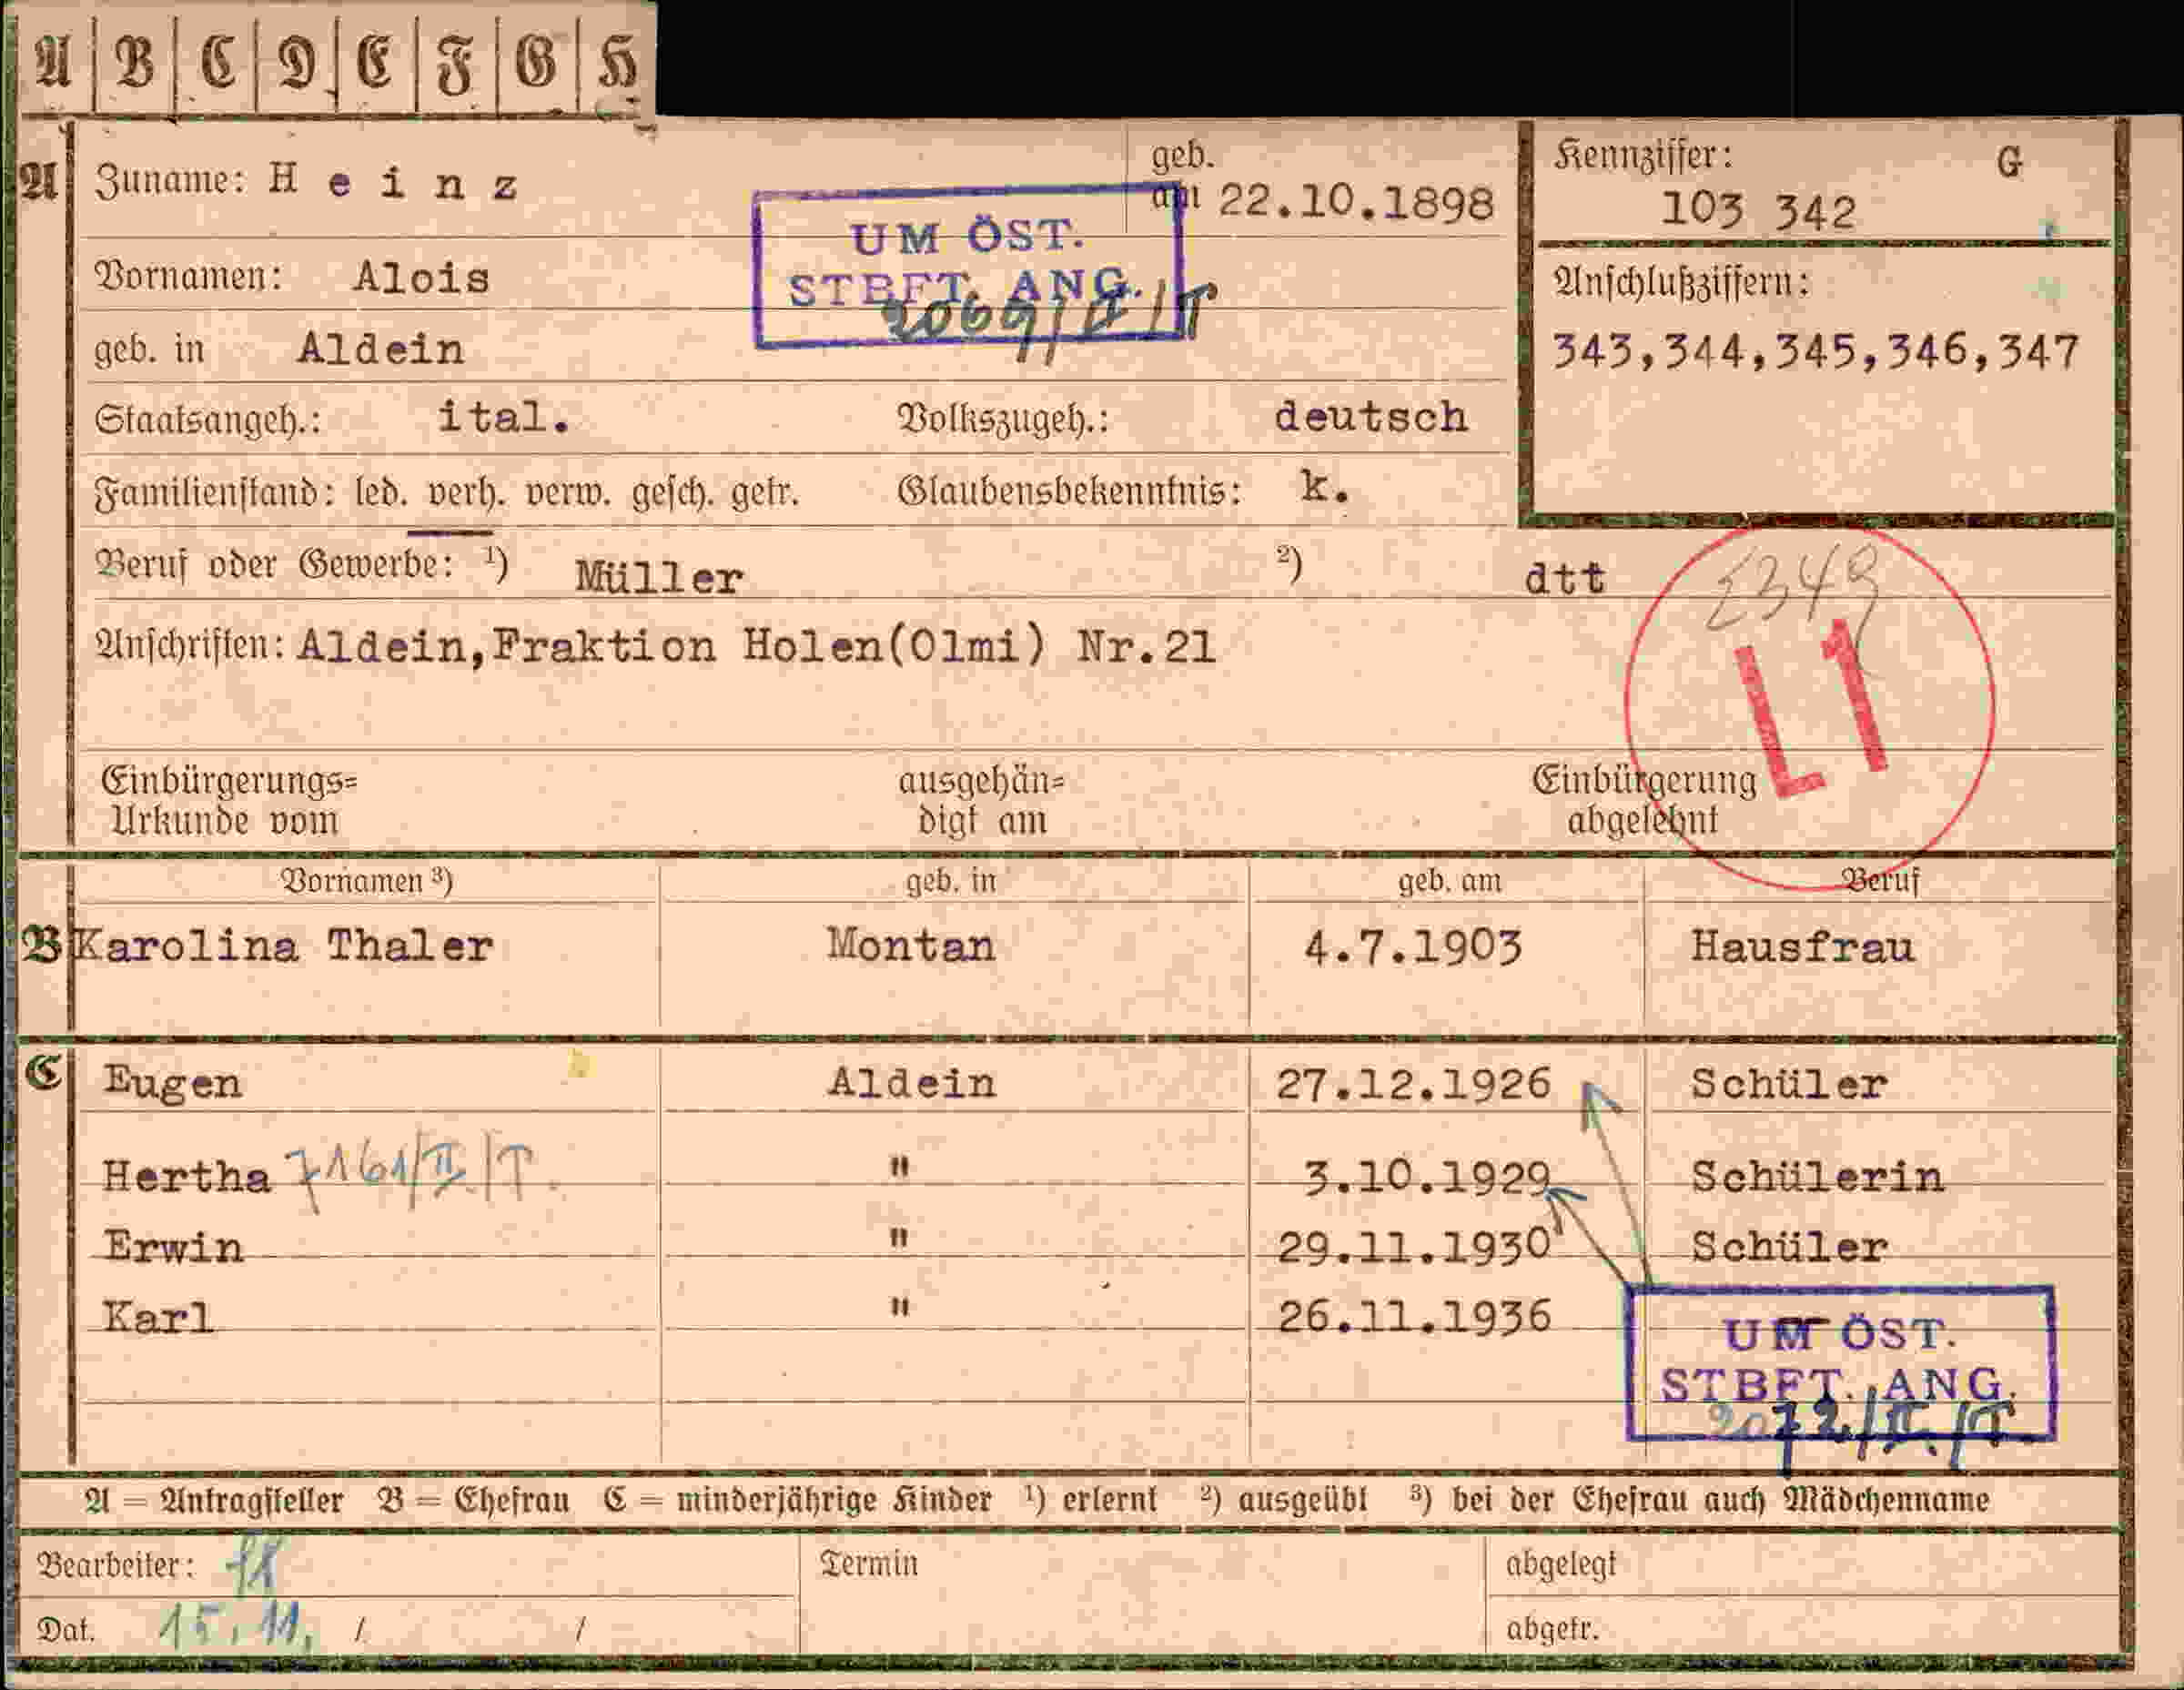 A B C D E F G H
A Zuname: H e i n z geb. am 22.10.1898 Kennziffer: G
103 342
UM ÖST.
STBFT. ANG.
2069/II/T
Vornamen: Alois
Anschlußziffern:
343,344,345,346,347
geb. in Aldein
Staatsangeh.: ital. Volkszugeh.: deutsch
Familienstand: led. verh. verw. gesch. getr. Glaubensbekenntnis: k.
Beruf oder Gewerbe: ¹) Müller ²) dtt
L1
Anschriften: Aldein,Fraktion Holen(Olmi) Nr.21
Einbürgerungs= ausgehän= Einbürgerung
Urkunde vom digt am abgelehnt
Vornamen ³) geb. in geb. am Beruf
B Karolina Thaler Montan 4.7.1903 Hausfrau
C Eugen Aldein 27.12.1926 Schüler
Hertha 7161/II/T. " 3.10.1929 Schülerin
Erwin " 29.11.1930 Schüler
Karl " 26.11.1936
UM ÖST.
STBFT. ANG.
2072/II./T
A = Antragsteller B = Ehefrau C = minderjährige Kinder ¹) erlernt ²) ausgeübt ³) bei der Ehefrau auch Mädchenname
Bearbeiter: Termin abgelegt
Dat. 15.11. / / abgetr.